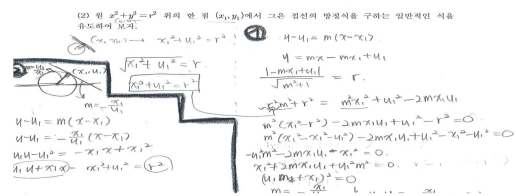 (2) 원 x²+y²=r² 위의 한 점 (x₁,y₁)에서 그은 접선의 방정식을 구하는 일반적인 식을
유도하여 보자.
(x₁,y₁) → x₁²+y₁²=r²
√x₁²+y₁² = r
x₁²+y₁²=r²
(x₁,y₁)
m = -x₁/y₁
y-y₁ = m(x-x₁)
y-y₁ = -x₁/y₁(x-x₁)
y₁y-y₁² = -x₁x+x₁²
x₁²+y₁²=r²
① y-y₁ = m(x-x₁)
y = mx-mx₁+y₁
|-mx₁+y₁|/√m²+1 = r.
r²m²+r² = m²x₁²+y₁²-2mx₁y₁
m²(x₁²-r²)-2mx₁y₁+y₁²-r²=0
m²(x₁²-x₁²-y₁²)-2mx₁y₁+y₁²-x₁²-y₁²=0
-y₁²m²-2mx₁y₁-x₁²=0.
x₁²+2mx₁y₁+y₁²m²=0.
(y₁m+x₁)²=0